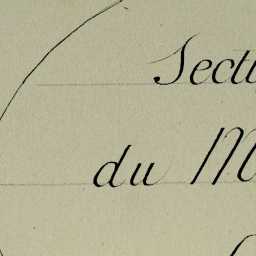 Secti
du M